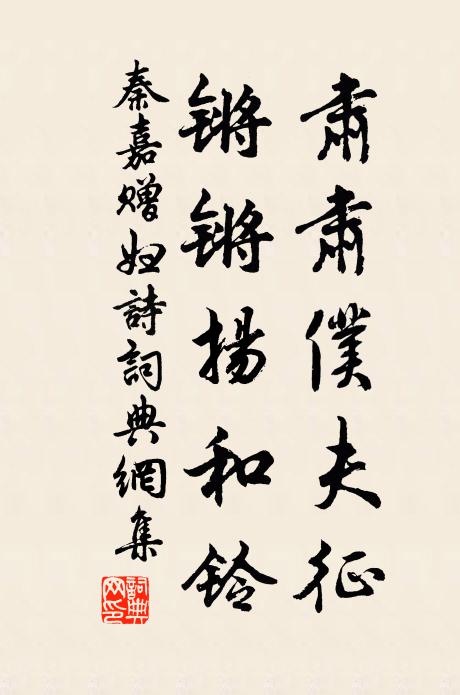 肅肅僕夫征
鏘鏘揚和鈴
秦嘉赠妇詩詞典網集
詞典网印